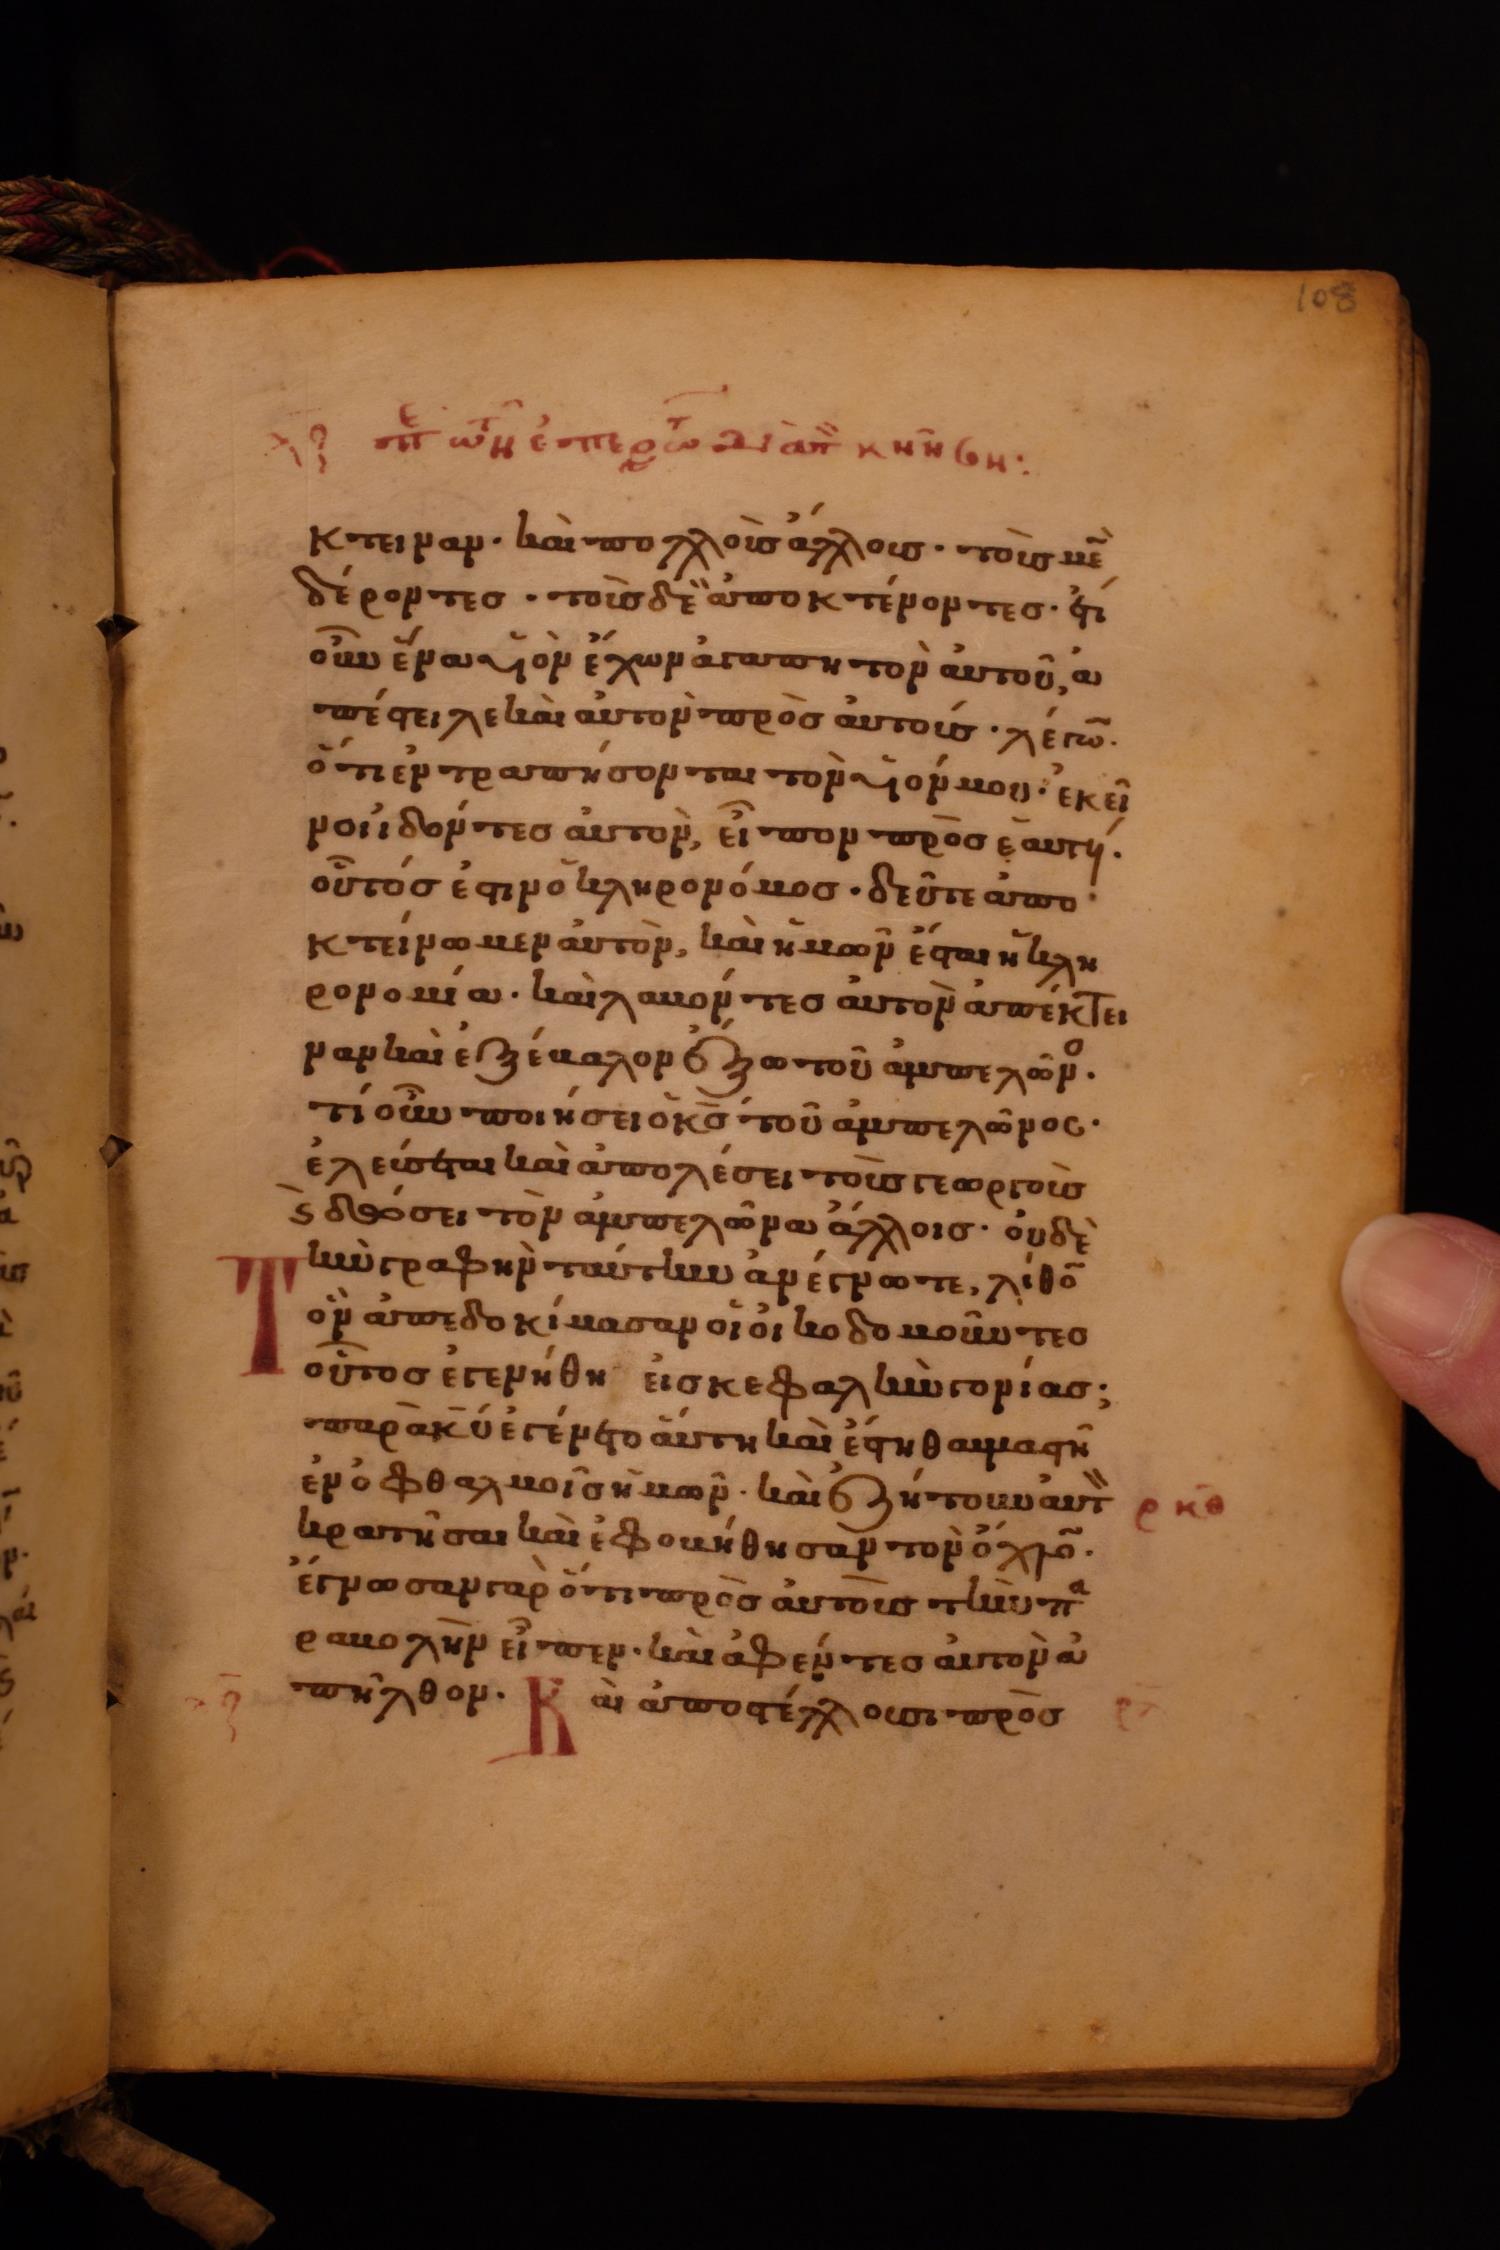 108
κτειναν· καὶ πολλοὺς ἄλλους· τοὺς μὲ̅
δέροντες· τοὺς δὲ ἀποκτένοντες· ἔτι
οὖν ἕνα υἱὸν ἔχων ἀγαπητὸν αὐτοῦ, ἀ
πέστειλε καὶ αὐτὸν πρὸς αὐτούς· λέγω̅·
ὅτι ἐντραπήσονται τὸν υἱόν μου· ἐκεῖ
νοι ἰδόντες αὐτὸν, εἶπον πρὸς ἑαυτ·
οὗτός ἐστιν ὁ κληρονόμος· δεῦτε ἀπο
κτείνωμεν αὐτὸν, καὶ ἡμῶν ἔσται ἡ κλη
ρονομία· καὶ λαβόντες αὐτὸν ἀπέκτει
ναν καὶ ἐξέβαλον ἔξω τοῦ ἀμπελῶνο·
τί οὖν ποιήσει ὁ κ̅ς̅ τοῦ ἀμπελῶνος·
ἐλεύσεται καὶ ἀπολέσει τοὺς γεωργοὺς
ϗ δώσει τὸν ἀμπελῶνα ἄλλοις· οὐδὲ
τὴν γραφὴν ταύτην ἀνέγνωτε, λίθο̅
ὃν ἀπεδοκίμασαν οἱ οἰκοδομοῦντες
οὗτος ἐγενήθη εἰς κεφαλὴν γωνίας;
παρὰ κ̅υ̅ ἐγένετο αὕτη καὶ ἔστι θαυμαστὴ
ἐν ὀφθαλμοῖς ἡμῶν· καὶ ἐζήτουν αὐτ
κρατῆσαι καὶ ἐφοβήθησαν τὸν ὄχλο̅·
ρκθ
ἔγνωσαν γὰρ ὅτι πρὸς αὐτοὺς τὴν πα
ραβολὴν εἶπεν· καὶ ἀφέντες αὐτὸν ἀ
πῆλθον· Καὶ ἀποστέλλουσι πρὸς